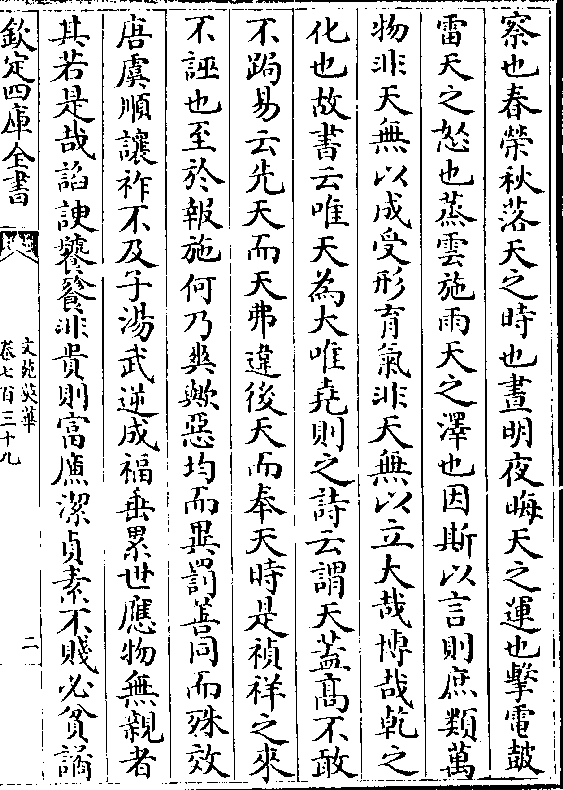 察也春榮秋落天之時也晝明夜晦天之運也擊電鼓
雷天之怒也蒸雲施雨天之澤也因斯以言則庶類萬
物非天無以成受形育氣非天無以立大哉博哉乾之
化也故書云唯天為大唯堯則之詩云謂天蓋髙不敢
不跼易云先天而天弗違後天而奉天時是禎祥之來
不誣也至於報施何乃爽歟惡均而異罰善同而殊效
唐虞順讓祚不及子湯武逆成福垂累世應物無親者
其若是哉諂諛饕餮非貴則富廉潔貞素不賤必貧誦
欽定四庫全書
文苑英華
卷七百三十九
二